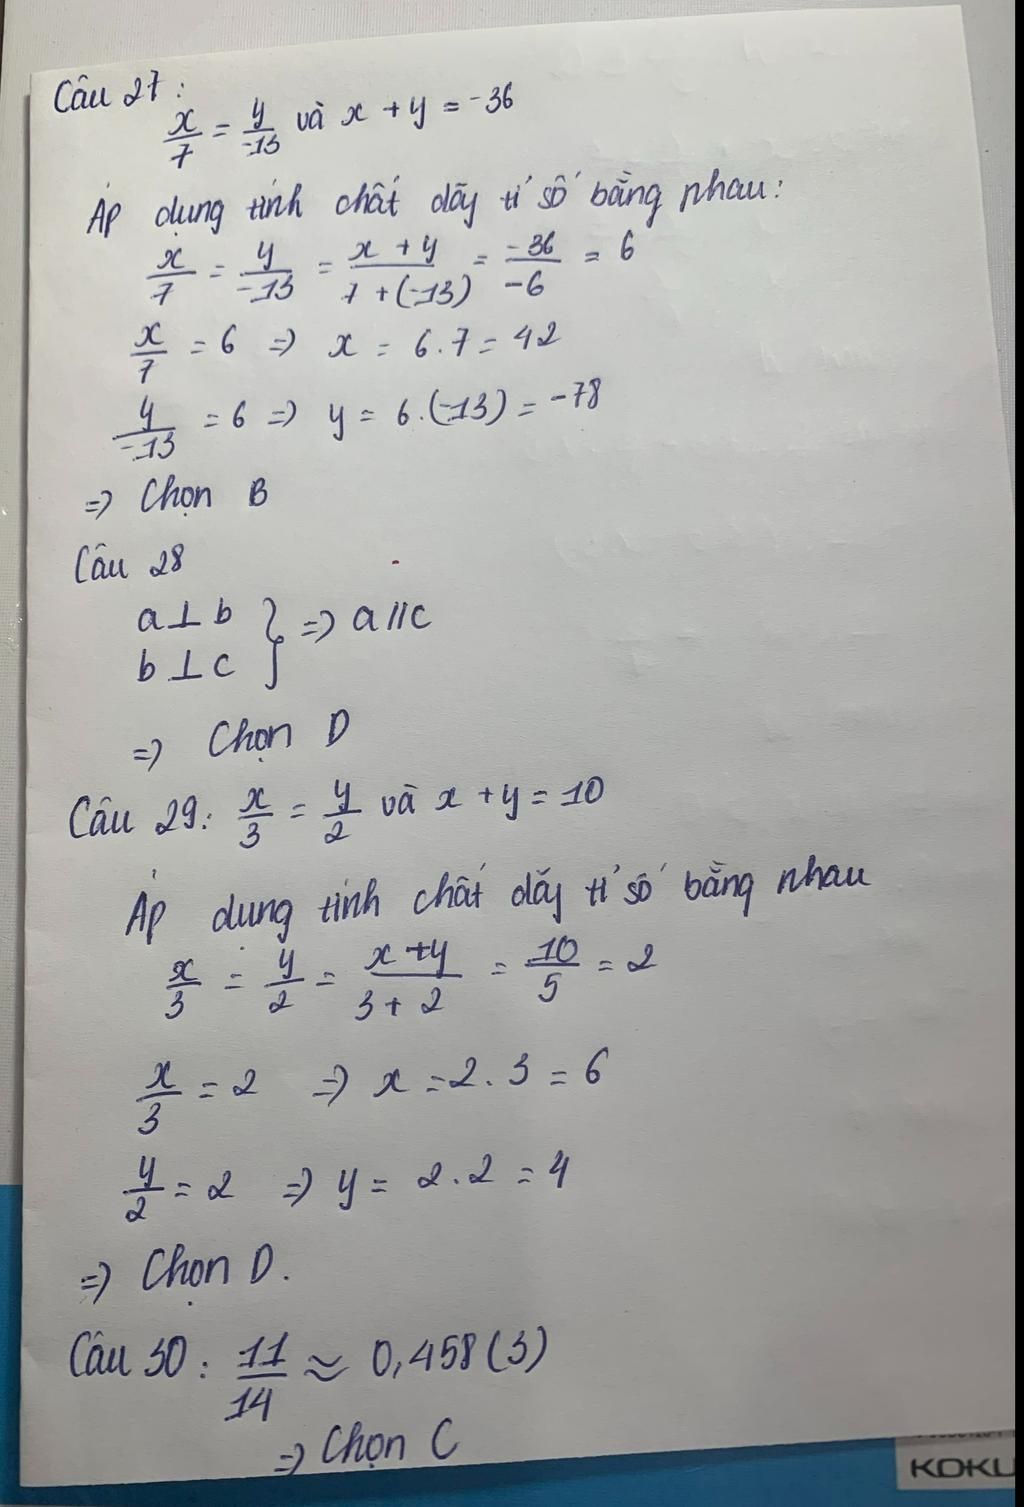 Câu 27:
x/7 = y/-13 và x + y = -36
Áp dụng tính chất dãy tỉ số bằng nhau:
x/7 = y/-13 = x + y/7 + (-13) = -36/-6 = 6
x/7 = 6 => x = 6.7 = 42
y/-13 = 6 => y = 6.(-13) = -78
=> Chọn B
Câu 28
a⊥b
b⊥c } => a//c
=> Chọn D
Câu 29: x/3 = y/2 và x + y = 10
Áp dụng tính chất dãy tỉ số bằng nhau
x/3 = y/2 = x + y/3 + 2 = 10/5 = 2
x/3 = 2 => x = 2.3 = 6
y/2 = 2 => y = 2.2 = 4
=> Chọn D.
Câu 30: 11/14 ≈ 0,458(3)
=> Chọn C
KOKU